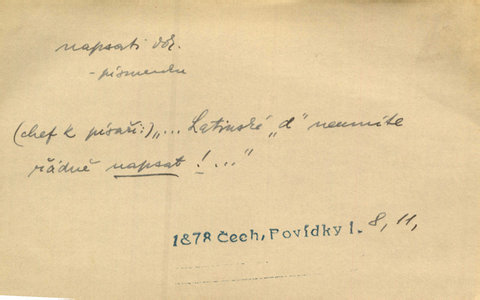 napsati dok.
- písmenku
(chef k písaři:) „... Latinské „d“ neumíte
řádně napsat ! ...“
1878 Čech, Povídky I. 8, 11,